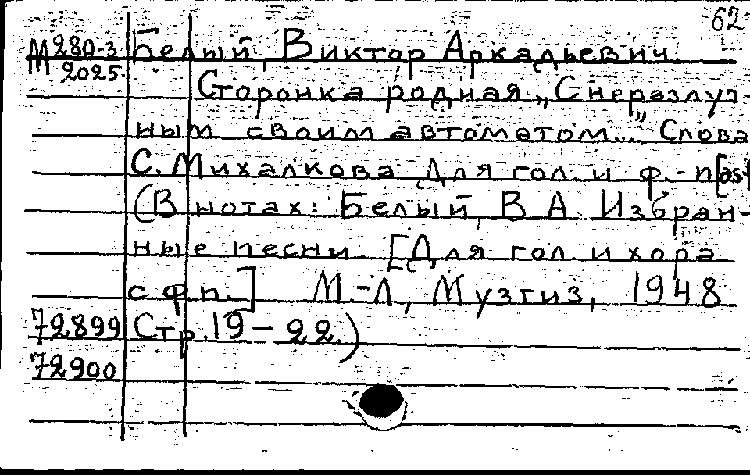 62
М 280-3 Белый, Виктор Аркадьевич.
М 2025
Сторонка родная „С неразлуч-
ным своим автоматом..." Слова
С. Михалкова Для гол. и ф.-п
(В нотах: Белый, В. А. Избран-
ные песни. [Для гол. и хора
с ф.п.] М.-Л., Музгиз, 1948
72899 Стр. 19-22.)
72900